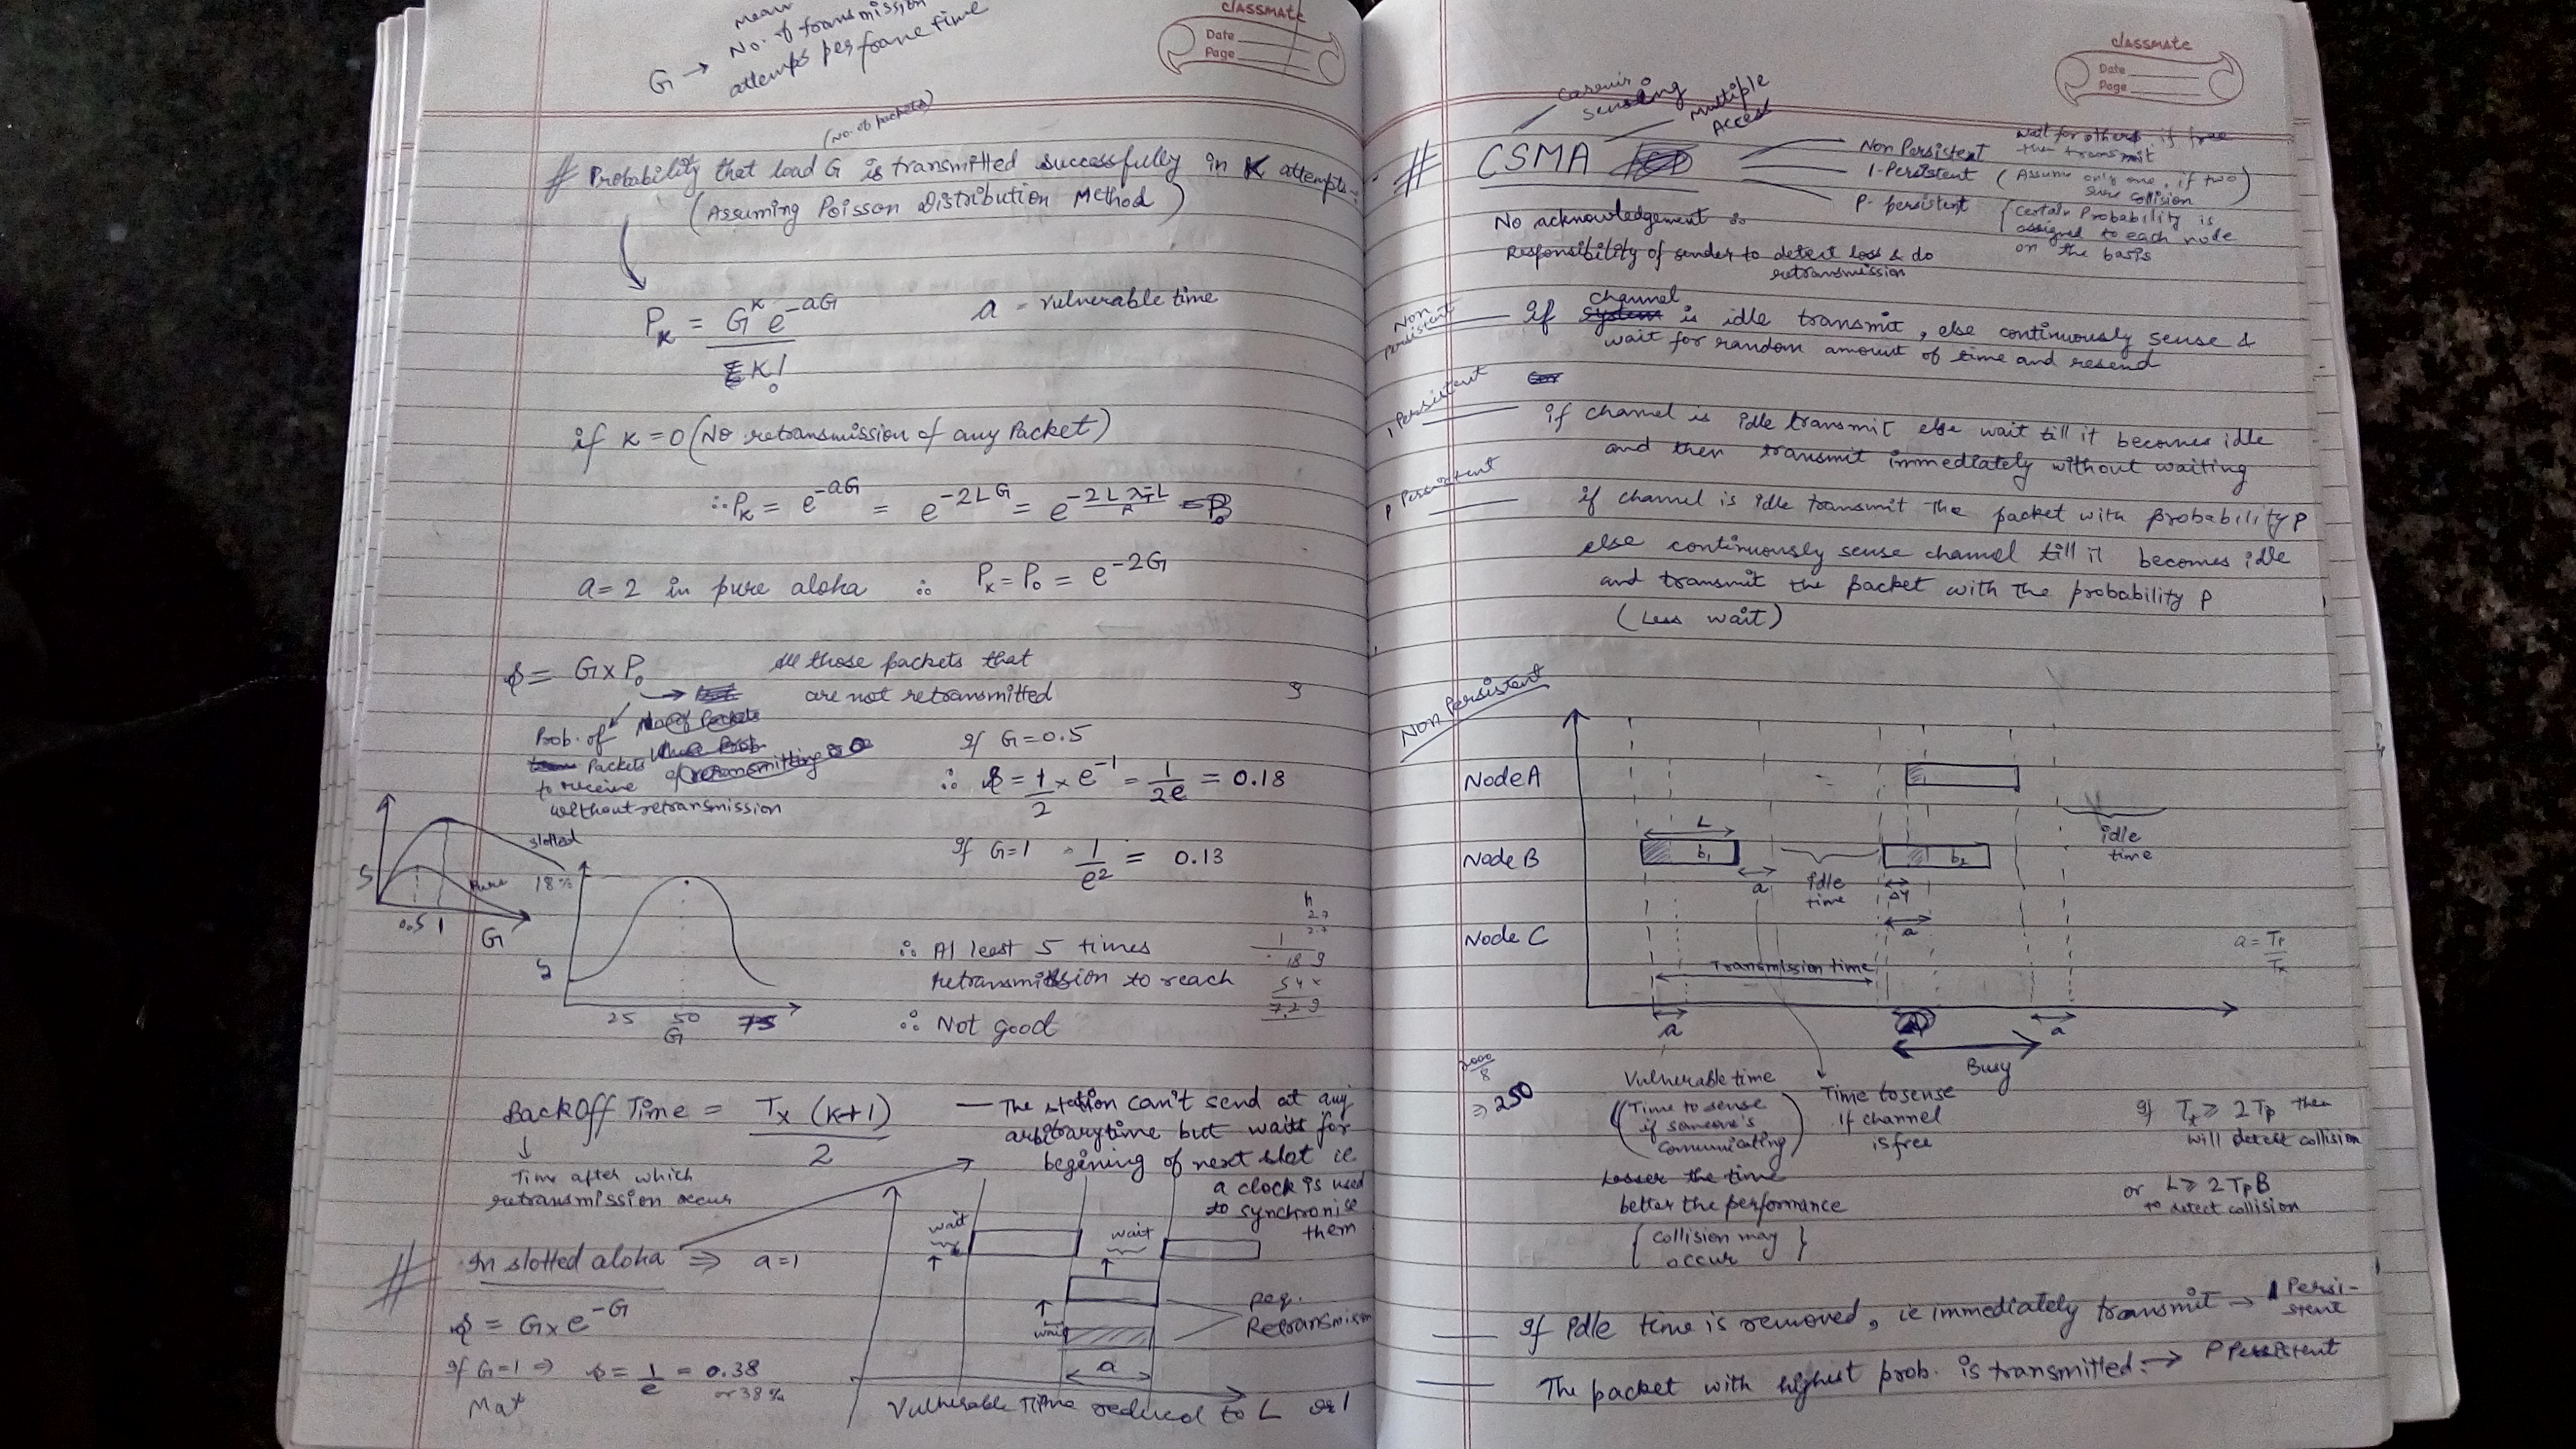 mean
No. of transmission
G → attemps per frame time
classmate
Date
Page
(No. of packets)
# Probability that load G is transmitted successfully in K attempts:-
(Assuming Poisson Distribution Method)
P_K = G^K e^-aG / K!
a = vulnerable time
if K = 0 (No retransmission of any Packet)
∴ P_K = e^-aG = e^-2LG =
a = 2 in pure aloha ∴ P_K = P_0 = e^-2G
S = G x P_0
All those packets that
are not retransmitted
Prob. of
Packets
to receive
without retransmission
If G = 0.5
∴ S = 1/2 x e^-1 = 1/2e = 0.18
If G = 1 1/e^2 = 0.13
slotted
Pure
S
0.5 1
G
18%
S
25 50 75
G
∴ At least 5 times
retransmission to reach
∴ Not good
Back Off Time = Tx (K+1) / 2
↓
Time after which
retransmission occur
— The station can't send at any
arbitrary time but waits for
begining of next slot ie
a clock is used
to synchronise
them
# In slotted aloha ⇒ a = 1
S = G x e^-G
If G = 1 ⇒ S = 1/e = 0.38
or 38%
Max
wait
wait
wait
Req.
Retransmism
a
Vulnerable Time reduced to L or 1
classmate
Date
Page
Carrier
sensing
Multiple
Acces
# CSMA
Non Persistent
wait for others if free
then transmit
1-Persistent (Assume only one, if two
sure collision)
P- persistent
(Certain Probability is
assigned to each node
on the basis
No acknowledgement ∴
Responsibility of sender to detect loss & do
retransmission
Non
Persistent
If channel is idle transmit, else continuously sense &
wait for random amount of time and resend
1 Persistent
if channel is idle transmit else wait till it becomes idle
and then transmit immediately without waiting
P Persistent
if channel is idle transmit the packet with probability P
else continuously sense channel till it becomes idle
and transmit the packet with the probability P
(Less wait)
Non Persistent
Node A
Node B
Node C
L
b1
a
idle
time
b2
Δy
a
idle
time
Transmission time
a = Tp/Tx
a
a
Busy
2000/8
⇒ 250
Vulnerable time
(Time to sense
if someone's
comunicating)
Lesser the time
better the performance
{Collision may
occur}
Time to sense
if channel
is free
If Tx ≥ 2Tp then
will detect collision
or L ≥ 2TpB
to detect collision
— If Idle time is removed, ie immediately transmit → 1 Persi-
stent
— The packet with highest prob. is transmitted: → P Persistent